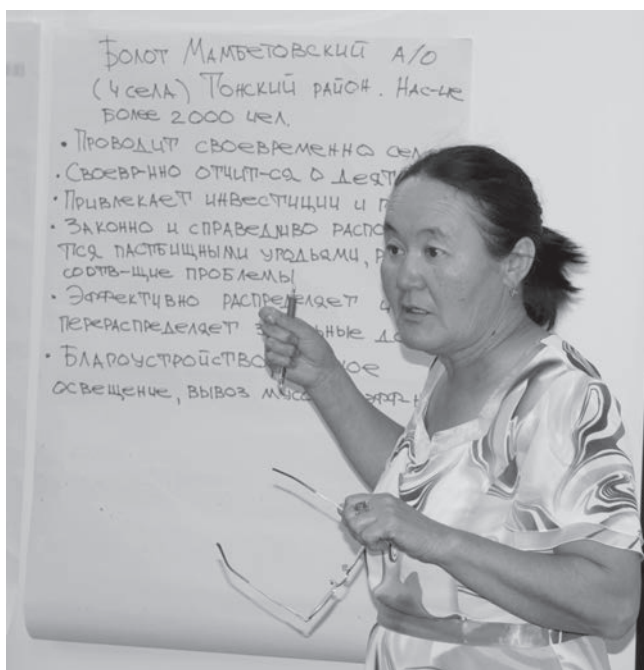 Болот Мамбетовский А/О
(4 села) Тонский район. Нас-ие
более 2000 чел.
• Проводит своевременно
• Своевр-нно отчит-ся о
• Привлекает инвестиции и
• Законно и справедливо
тся пастбищными угодьями,
соотв-щие проблемы
• Эффективно распределяет
перераспределяет
• Благоустройство
освещение, вывоз